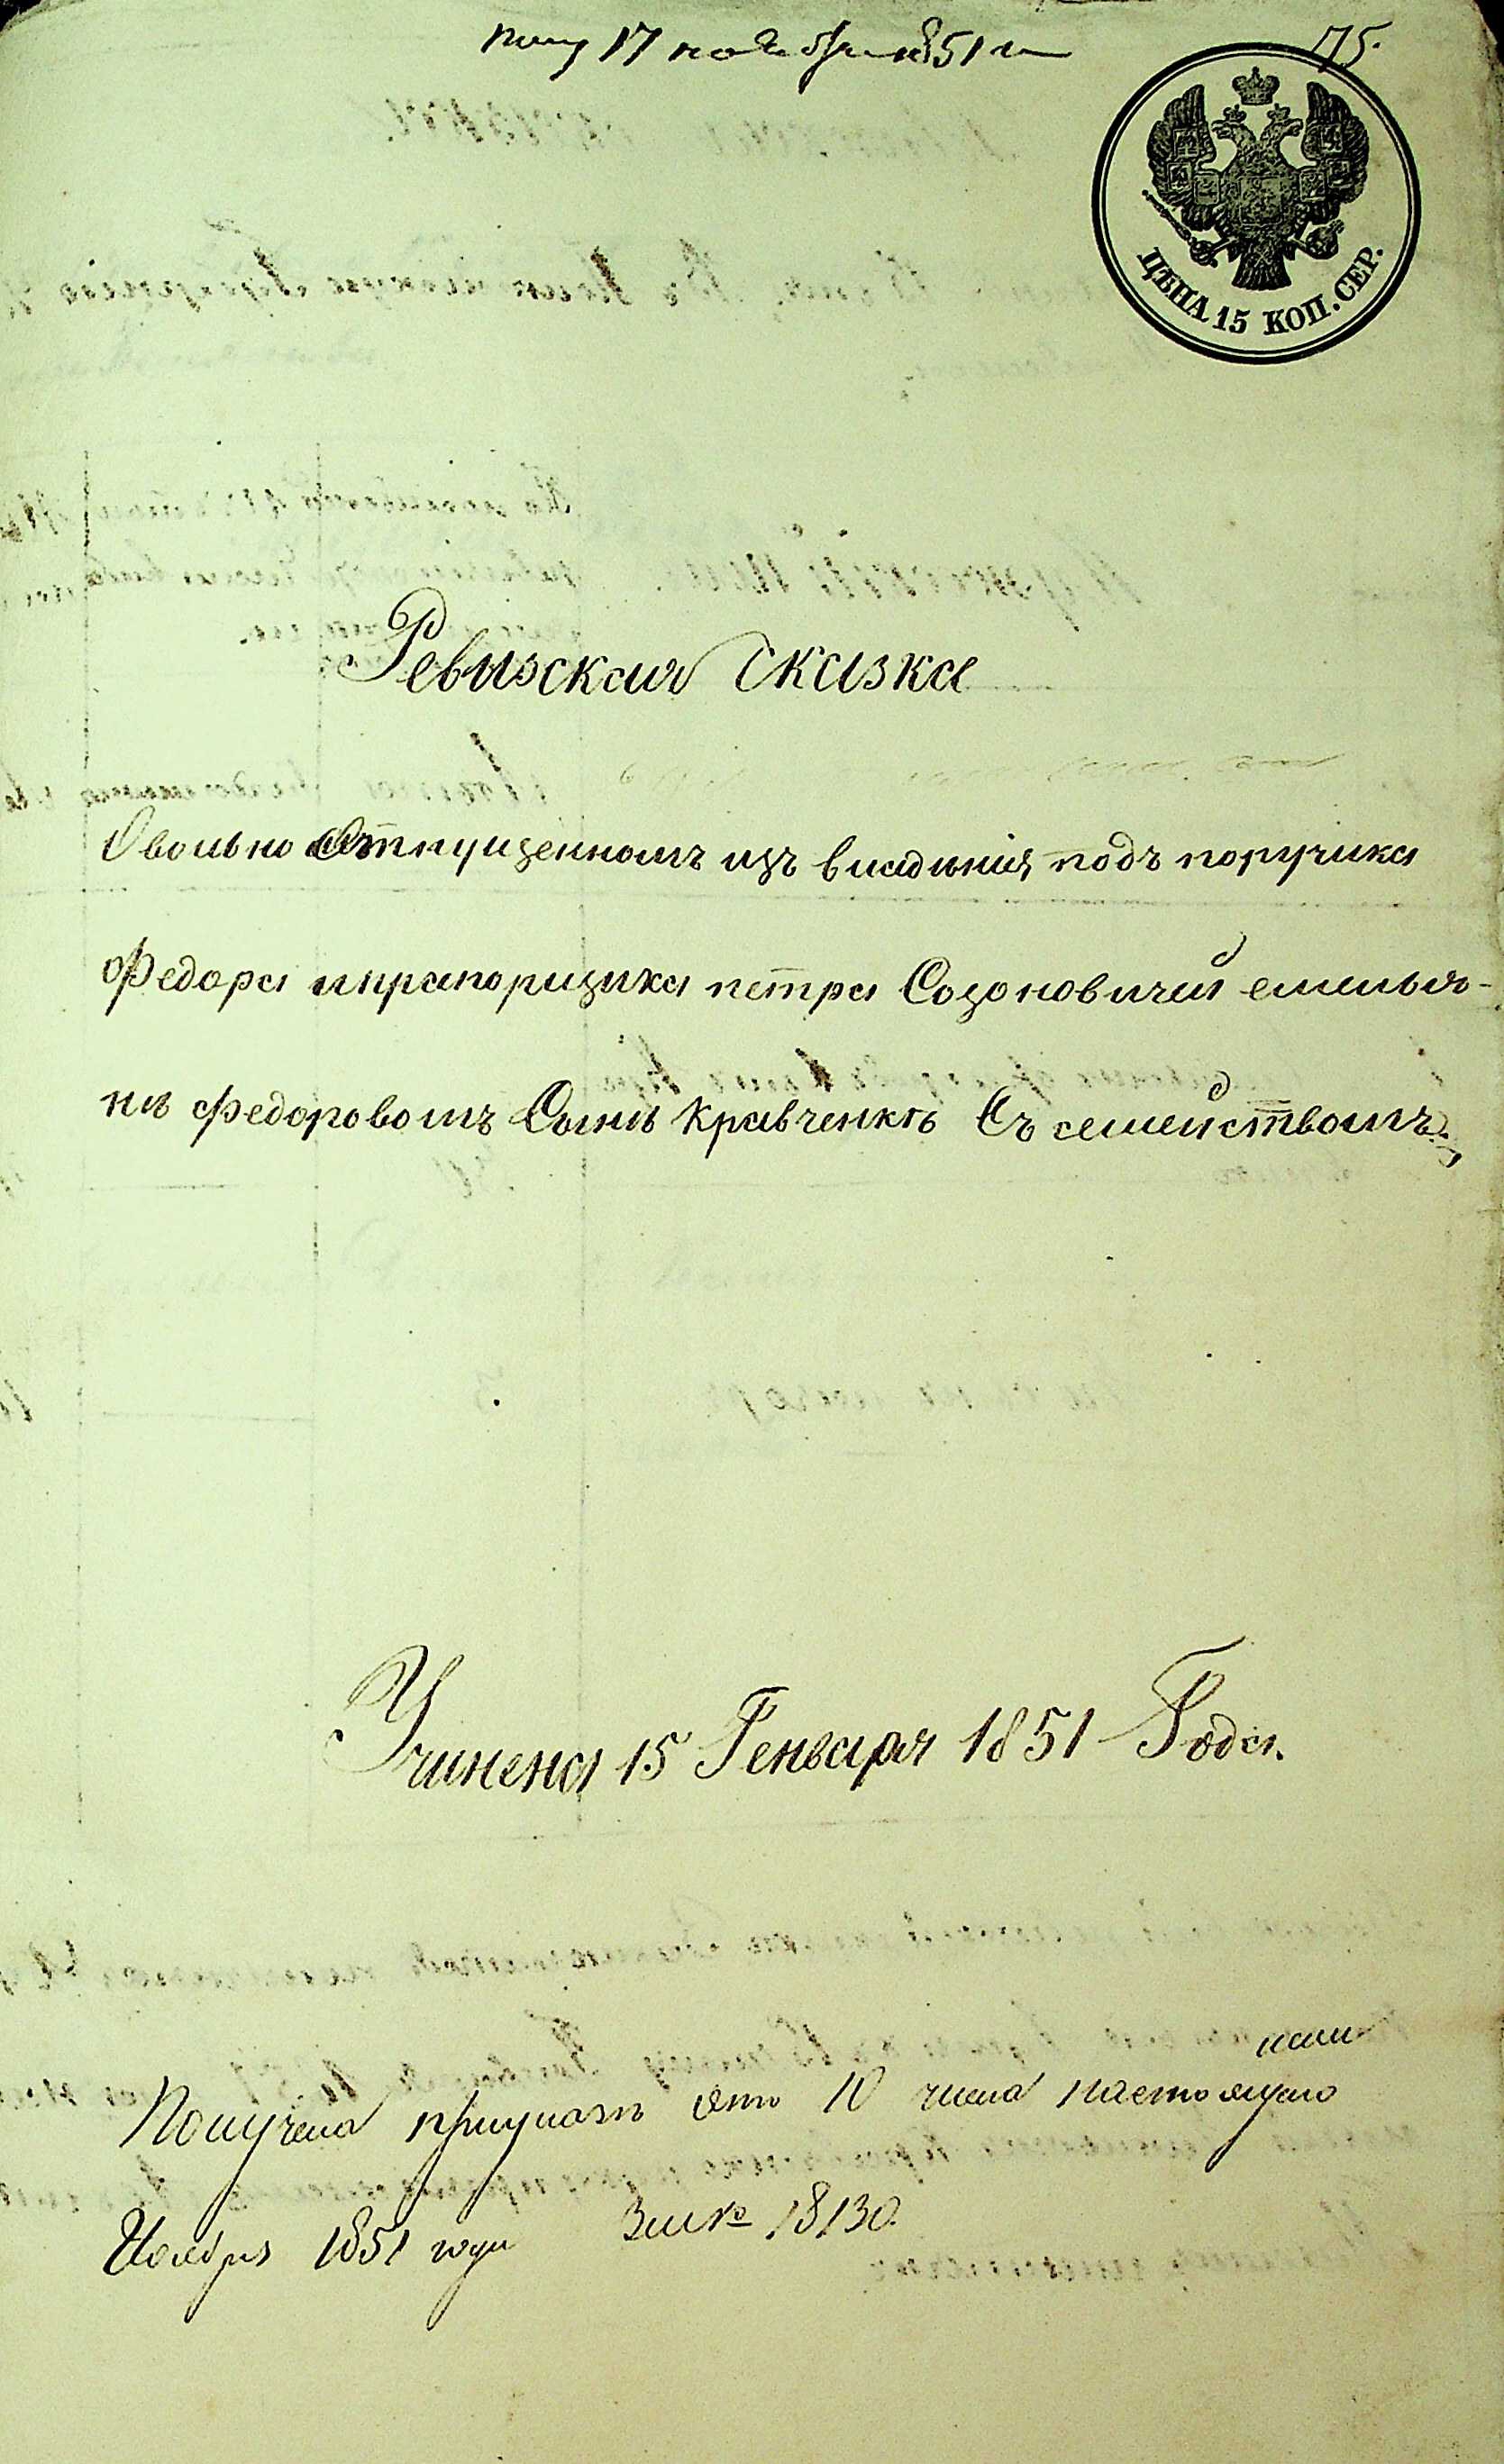 пол 17 ноября 1851 г
75.
ЦѢНА 15 КОП. СЕР.
Ревизская сказка
О вольно отпущенномъ изъ владѣнія подъ поручика
Федора и прапорщика петра Созоновичей емелья-
нѣ Федоровомъ Сынѣ Кравченкѣ Съ семействомъ
Учинена 15 Генваря 1851 Года.
Получена при отъ 10 числа настоящаго
Ноября 1851 года За № 18130.